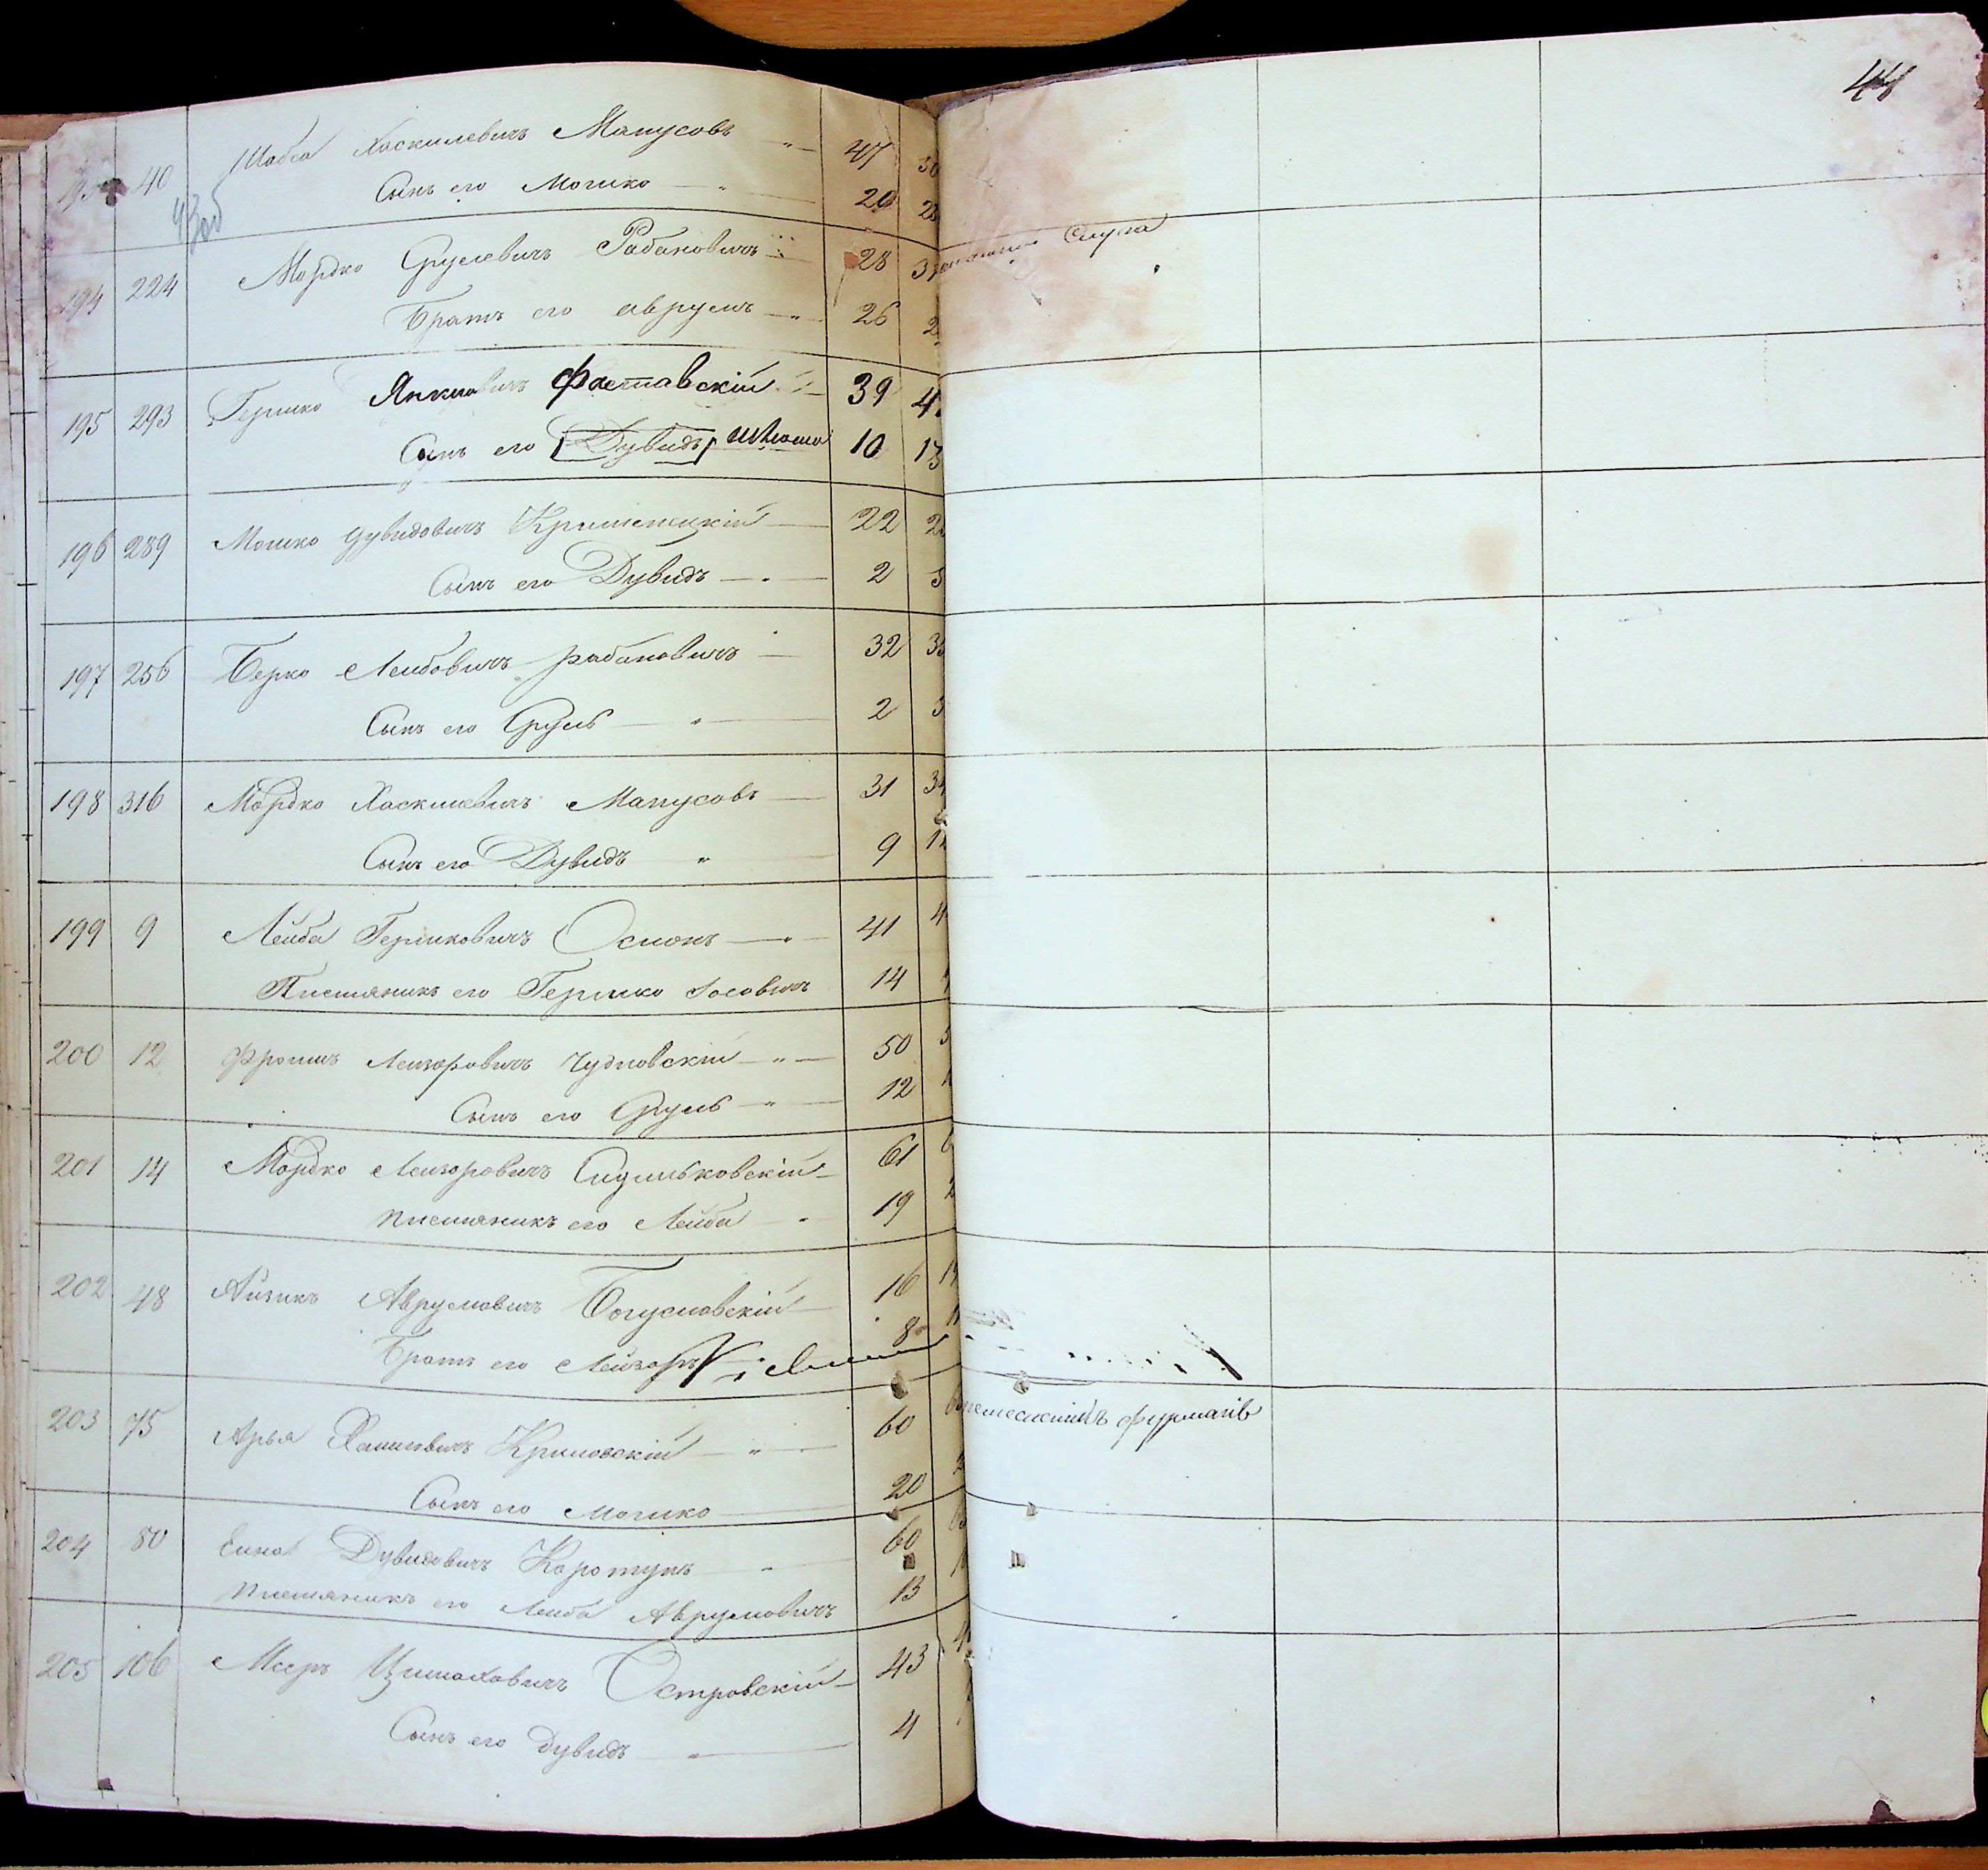 44
40 Шабса Хаскилевичъ Манусовъ 47
43об
Сынъ его Мошко 20
194 224 Мордко Срулевичъ Рабиновичъ 28 Слуга
Братъ его Аврумъ 26
195 293 Гершко Янкиовичъ Фаставскій 39
Сынъ его [Дувидъ] Шлёма 10 13
196 289 Мошко Дувидовичъ 22
Сынъ его Дувидъ 2
197 256 Берко Лейбовичъ Рабиновичъ 32
Сынъ его Сруль 2
198 316 Мордко Хаскилевичъ Манусовъ 31 34
Сынъ его Дувидъ 9
199 9 Лейба Гершковичъ 41
Племяникъ его Гершко Іосовичъ 14
200 12 Фроимъ Лейзоровичъ Чудновскій 50
Сынъ его Сруль 12
201 14 Мордко Лейзоровичъ 61
Племяникъ его Лейба 19
202 48 Айзикъ Аврумовичъ Богуславскій 16
Братъ его Лейзоръ 8
203 75 Арья Криловскій 60 фурманъ
Сынъ его Мошко 20
204 80 Дувидовичъ Коротунъ 60
Племяникъ его Лейба Аврумовичъ 13
205 106 Мееръ Островскій 43
Сынъ его Дувидъ 4